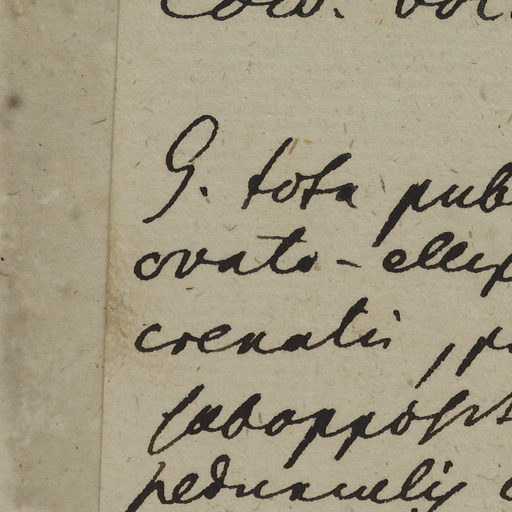 G. tota pub
ovato-ellip
crenatis, p
suboppósit
pedunculis